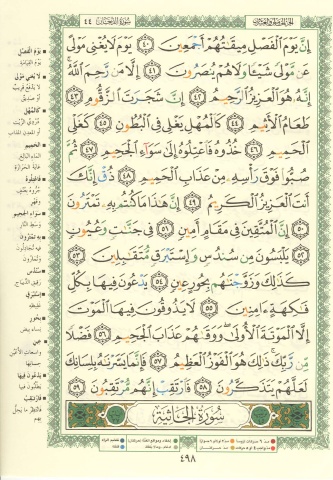 الجزء الخامس والعشرون
سورة الدخان ٤٤
إِنَّ يَوْمَ ٱلْفَصْلِ مِيقَـٰتُهُمْ أَجْمَعِينَ ٤٠ يَوْمَ لَا يُغْنِى مَوْلًى
عَن مَّوْلًى شَيْـًٔا وَلَا هُمْ يُنصَرُونَ ٤١ إِلَّا مَن رَّحِمَ ٱللَّهُ
إِنَّهُۥ هُوَ ٱلْعَزِيزُ ٱلرَّحِيمُ ٤٢ إِنَّ شَجَرَتَ ٱلزَّقُّومِ ٤٣
طَعَامُ ٱلْأَثِيمِ ٤٤ كَٱلْمُهْلِ يَغْلِى فِى ٱلْبُطُونِ ٤٥ كَغَلْىِ
ٱلْحَمِيمِ ٤٦ خُذُوهُ فَٱعْتِلُوهُ إِلَىٰ سَوَآءِ ٱلْجَحِيمِ ٤٧ ثُمَّ
صُبُّوا۟ فَوْقَ رَأْسِهِۦ مِنْ عَذَابِ ٱلْحَمِيمِ ٤٨ ذُقْ إِنَّكَ
أَنتَ ٱلْعَزِيزُ ٱلْكَرِيمُ ٤٩ إِنَّ هَـٰذَا مَا كُنتُم بِهِۦ تَمْتَرُونَ
٥٠ إِنَّ ٱلْمُتَّقِينَ فِى مَقَامٍ أَمِينٍ ٥١ فِى جَنَّـٰتٍ وَعُيُونٍ
٥٢ يَلْبَسُونَ مِن سُندُسٍ وَإِسْتَبْرَقٍ مُّتَقَـٰبِلِينَ ٥٣
كَذَٰلِكَ وَزَوَّجْنَـٰهُم بِحُورٍ عِينٍ ٥٤ يَدْعُونَ فِيهَا بِكُلِّ
فَـٰكِهَةٍ ءَامِنِينَ ٥٥ لَا يَذُوقُونَ فِيهَا ٱلْمَوْتَ
إِلَّا ٱلْمَوْتَةَ ٱلْأُولَىٰ وَوَقَىٰهُمْ عَذَابَ ٱلْجَحِيمِ ٥٦ فَضْلًا
مِّن رَّبِّكَ ذَٰلِكَ هُوَ ٱلْفَوْزُ ٱلْعَظِيمُ ٥٧ فَإِنَّمَا يَسَّرْنَـٰهُ بِلِسَانِكَ
لَعَلَّهُمْ يَتَذَكَّرُونَ ٥٨ فَٱرْتَقِبْ إِنَّهُم مُّرْتَقِبُونَ ٥٩
سُورَةُ الْجَاثِيَةِ
يَوْمَ الفَصْلِ
يوم القيامة
لا يُغني مَوْلىً
كالمُهْلِ
الحَمِيمِ
فاعتِلُوهُ
سَوَاءِ الجَحِيمِ
بِهِ تَمْتَرُونَ
سُنْدُسٍ
إِسْتَبْرَقٍ
بِحُورٍ
عِينٍ
يَدْعُونَ فِيهَا
فَارْتَقِبْ
٤٩٨